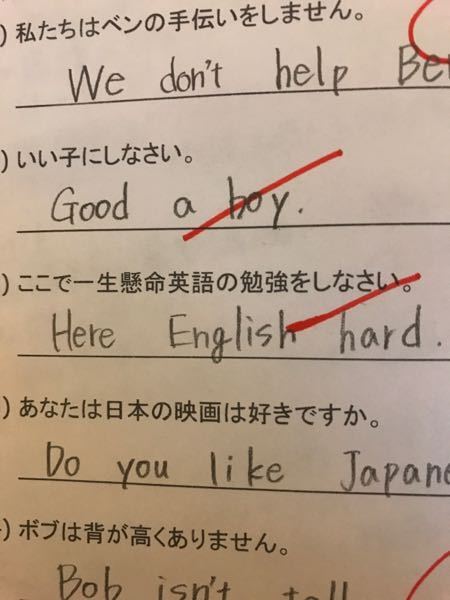 ) 私たちはベンの手伝いをしません。
We don't help Be
) いい子にしなさい。
Good a boy.
) ここで一生懸命英語の勉強をしなさい。
Here English hard.
) あなたは日本の映画は好きですか。
Do you like Japane
) ボブは背が高くありません。
Bob isn't tall